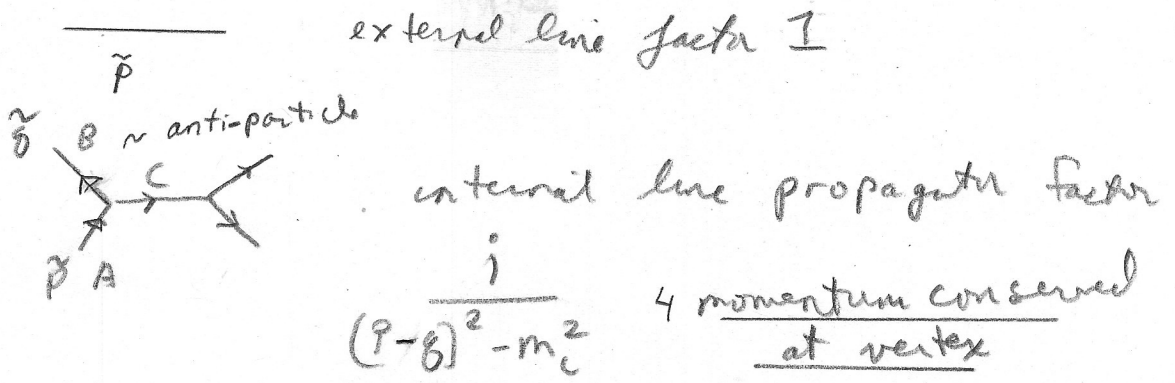 external line factor 1
p̃
q̃ B ~ anti-particle
C
internal line propagator factor
p̃ A
i
(p-q)² - m_c²
4 momentum conserved
at vertex